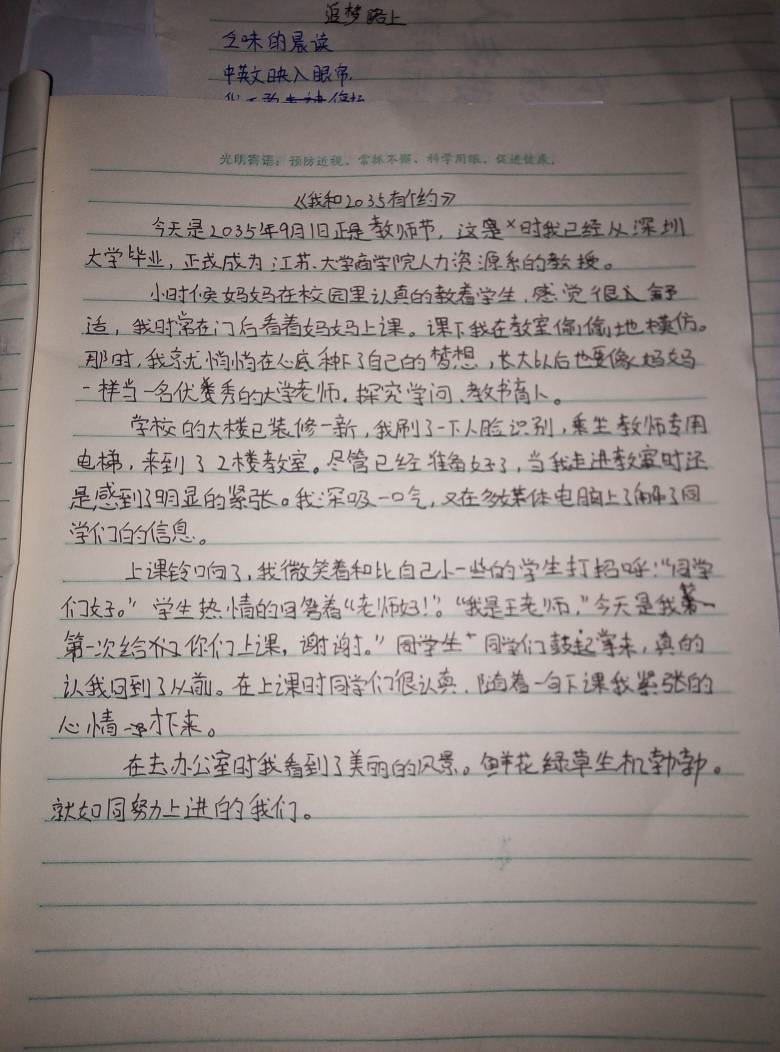 追梦路上
乏味的晨读
中英文映入眼帘
光明寄语:预防近视、常抓不懈、科学用眼、促进健康。
《我和2035有个约》
今天是2035年9月1日正是教师节,这是×时我已经从深圳
大学毕业,正式成为江苏大学商学院人力资源系的教授。
小时候妈妈在校园里认真的教着学生,感觉很舒
适,我时常在门后看着妈妈上课。课下我在教室偷偷地模仿。
那时,我就悄悄在心底种下了自己的梦想,长大以后也要像妈妈
一样当一名优秀的大学老师,探究学问、教书育人。
学校的大楼已装修一新,我刷了一下人脸识别,乘坐教师专用
电梯,来到了2楼教室。尽管已经准备好了,当我走进教室时还
是感到了明显的紧张。我深吸一口气,又在多媒体电脑上了解了同
学们的信息。
上课铃响了,我微笑着和比自己小一些的学生打招呼:“同学
们好。”学生热情的回答着“老师好!”。“我是王老师,”今天是我
第一次给你们上课,谢谢。”同学生 同学们鼓起掌来,真的
认我回到了从前。在上课时同学们很认真,随着一句下课我紧张的
心情 才下来。
在去办公室时我看到了美丽的风景。鲜花绿草生机勃勃。
就如同努力上进的我们。